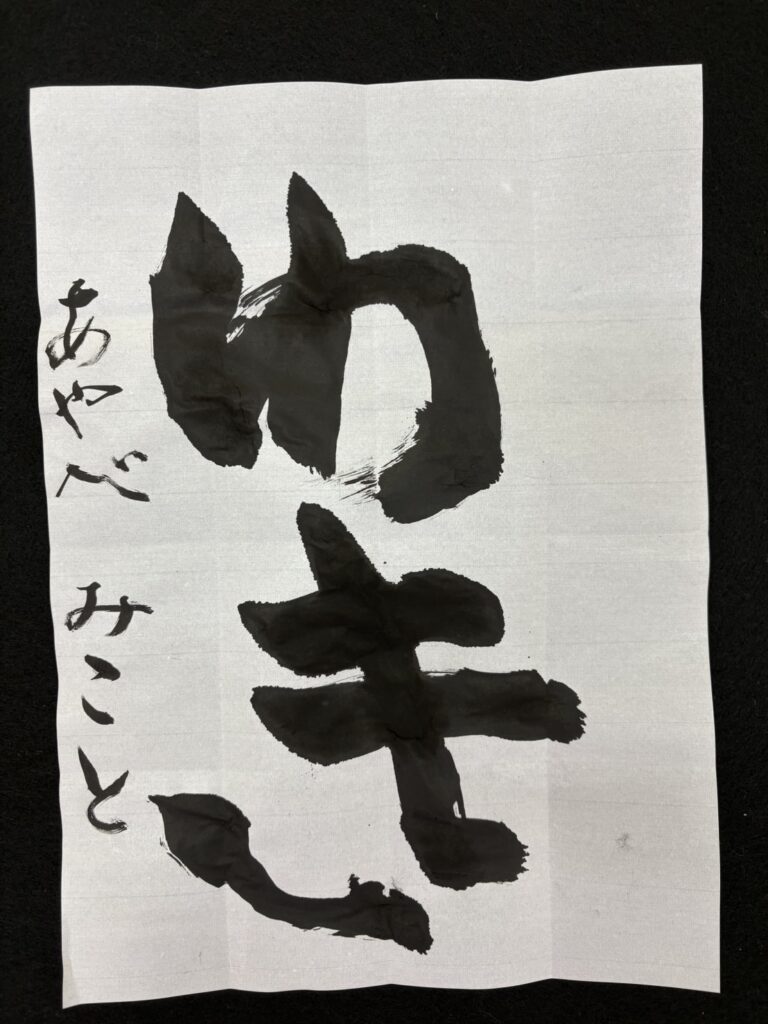 ゆき
あやべ みこと